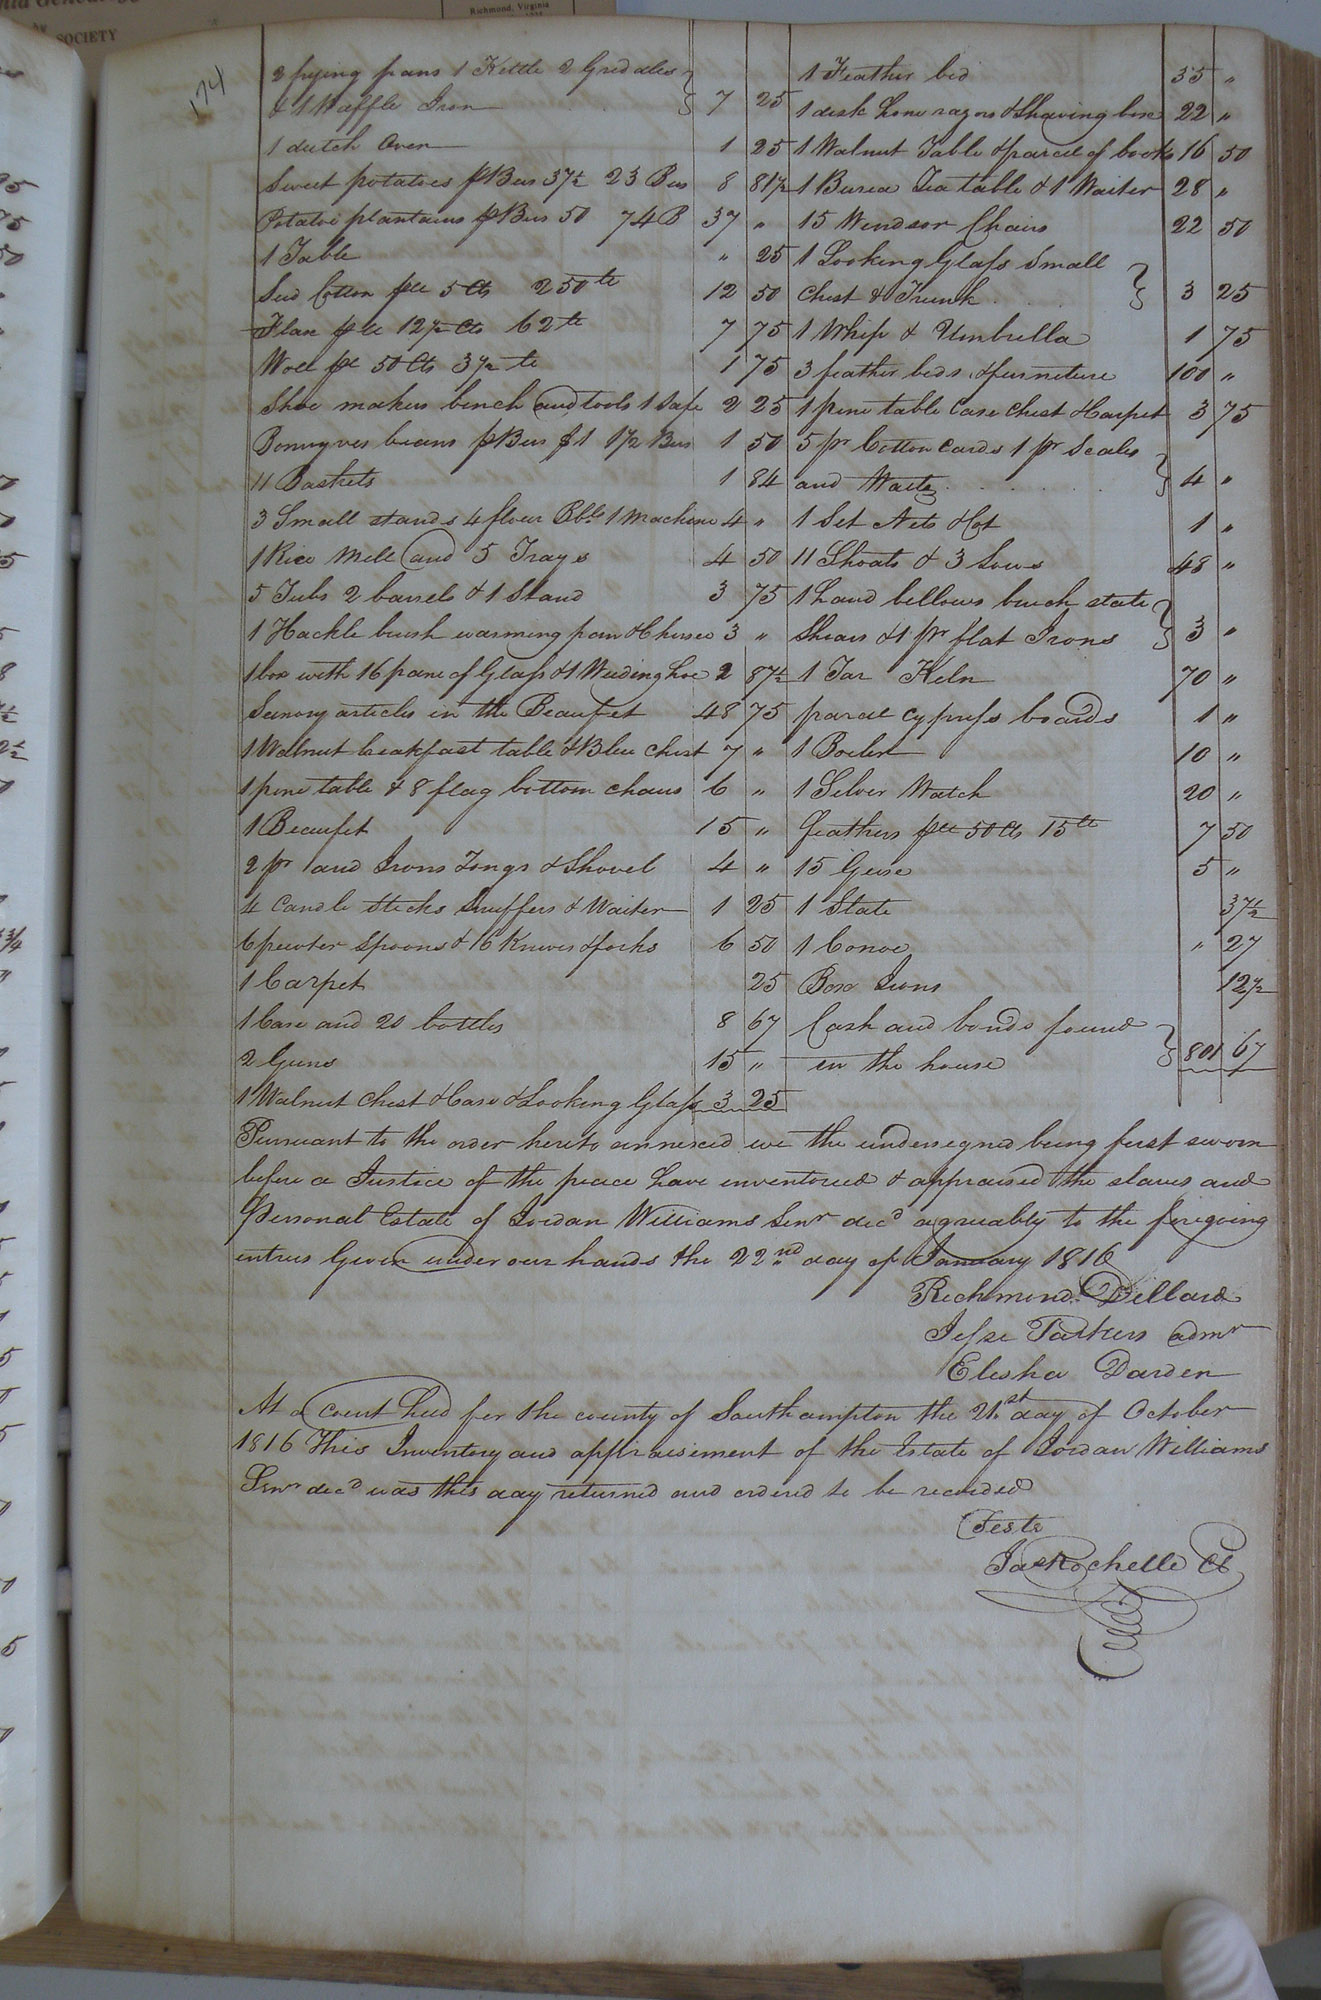 SOCIETY
Richmond, Virginia
174
2 frying pans 1 Kettle 2 Gredales
& 1 Waffle Iron 7 25
1 dutch Oven 1 25
Sweet potatoes p Bus 37½ 23 Bus 8 81½
Potatoe plantains p Bus 50 74 B 37 "
1 Table " 25
Seed Cotton pr 5 Cts 250 lb 12 50
Flax pr 12½ Cts 62 lb 7 75
Wool pr 50 Cts 3½ lb 1 75
Shoe makers bench and tools 1 Safe 2 25
Bonnyves beans p Bus $1 1½ Bus 1 50
11 Baskets 1 84
3 Small stands 4 flour Bbls 1 Machine 4 "
1 Rice Mill and 5 Trays 4 50
5 Tubs 2 barrels & 1 Stand 3 75
1 Hackle brush warming pan & 3 "
1 box with 16 pane of Glass & 1 Weeding hoe 2 87½
Sunory articles in the Beaufet 48 75
1 Walnut breakfast table & Blue chest 7 "
1 pine table & 8 flag bottom chairs 6 "
1 Beaufet 15 "
2 pr and Irons Tongs & Shovel 4 "
4 Candle sticks Snuffers & Waiter 1 25
6 pewter Spoons & 16 Knives & forks 6 50
1 Carpet 25
1 Case and 20 bottles 8 67
2 Guns 15 "
1 Walnut Chest & Case & Looking Glass 3 25
1 Feather bed 35 "
1 desk hone razors & Shaving box 22 "
1 Walnut Table & parcel of books 16 50
1 Burea Tea table & 1 Waiter 28 "
15 Windsor Chairs 22 50
1 Looking Glass Small
Chest & Trunk 3 25
1 Whip & Umbrella 1 75
3 feather beds & furneture 100 "
1 pine table Case Chest & Carpet 3 75
5 pr Cotton Cards 1 pr Scales
and Waits 4 "
1 Set Nets & Cot 1 "
11 Shoats & 3 Sows 48 "
1 hand bellows bench state
Shears & 1 pr flat Irons 3 "
1 Tar Keln 70 "
parcel cypress boards 1 "
1 Boiler 10 "
1 Silver Watch 20 "
Feathers pr 50 Cts 15 lb 7 50
15 Geese 5 "
1 State 37½
1 Conoe " 27
Box Irons 12½
Cash and bonds found
in the house 801 67
Pursuant to the order hereto annexed we the undersegned being first sworn
before a Justice of the peace have inventoried & appraised the slaves and
Personal Estate of Jordan Williams Senr decd agreeably to the foregoing
entries Given under our hands the 22nd day of January 1816
Richmond Dillard
Jesse Parkers admr
Elisha Darden
At a Court held for the county of Southampton the 21st day of October
1816 This Inventory and appraisement of the Estate of Jordan Williams
Senr decd was this day returned and ordered to be recorded
Teste
Jas Rochelle Cl